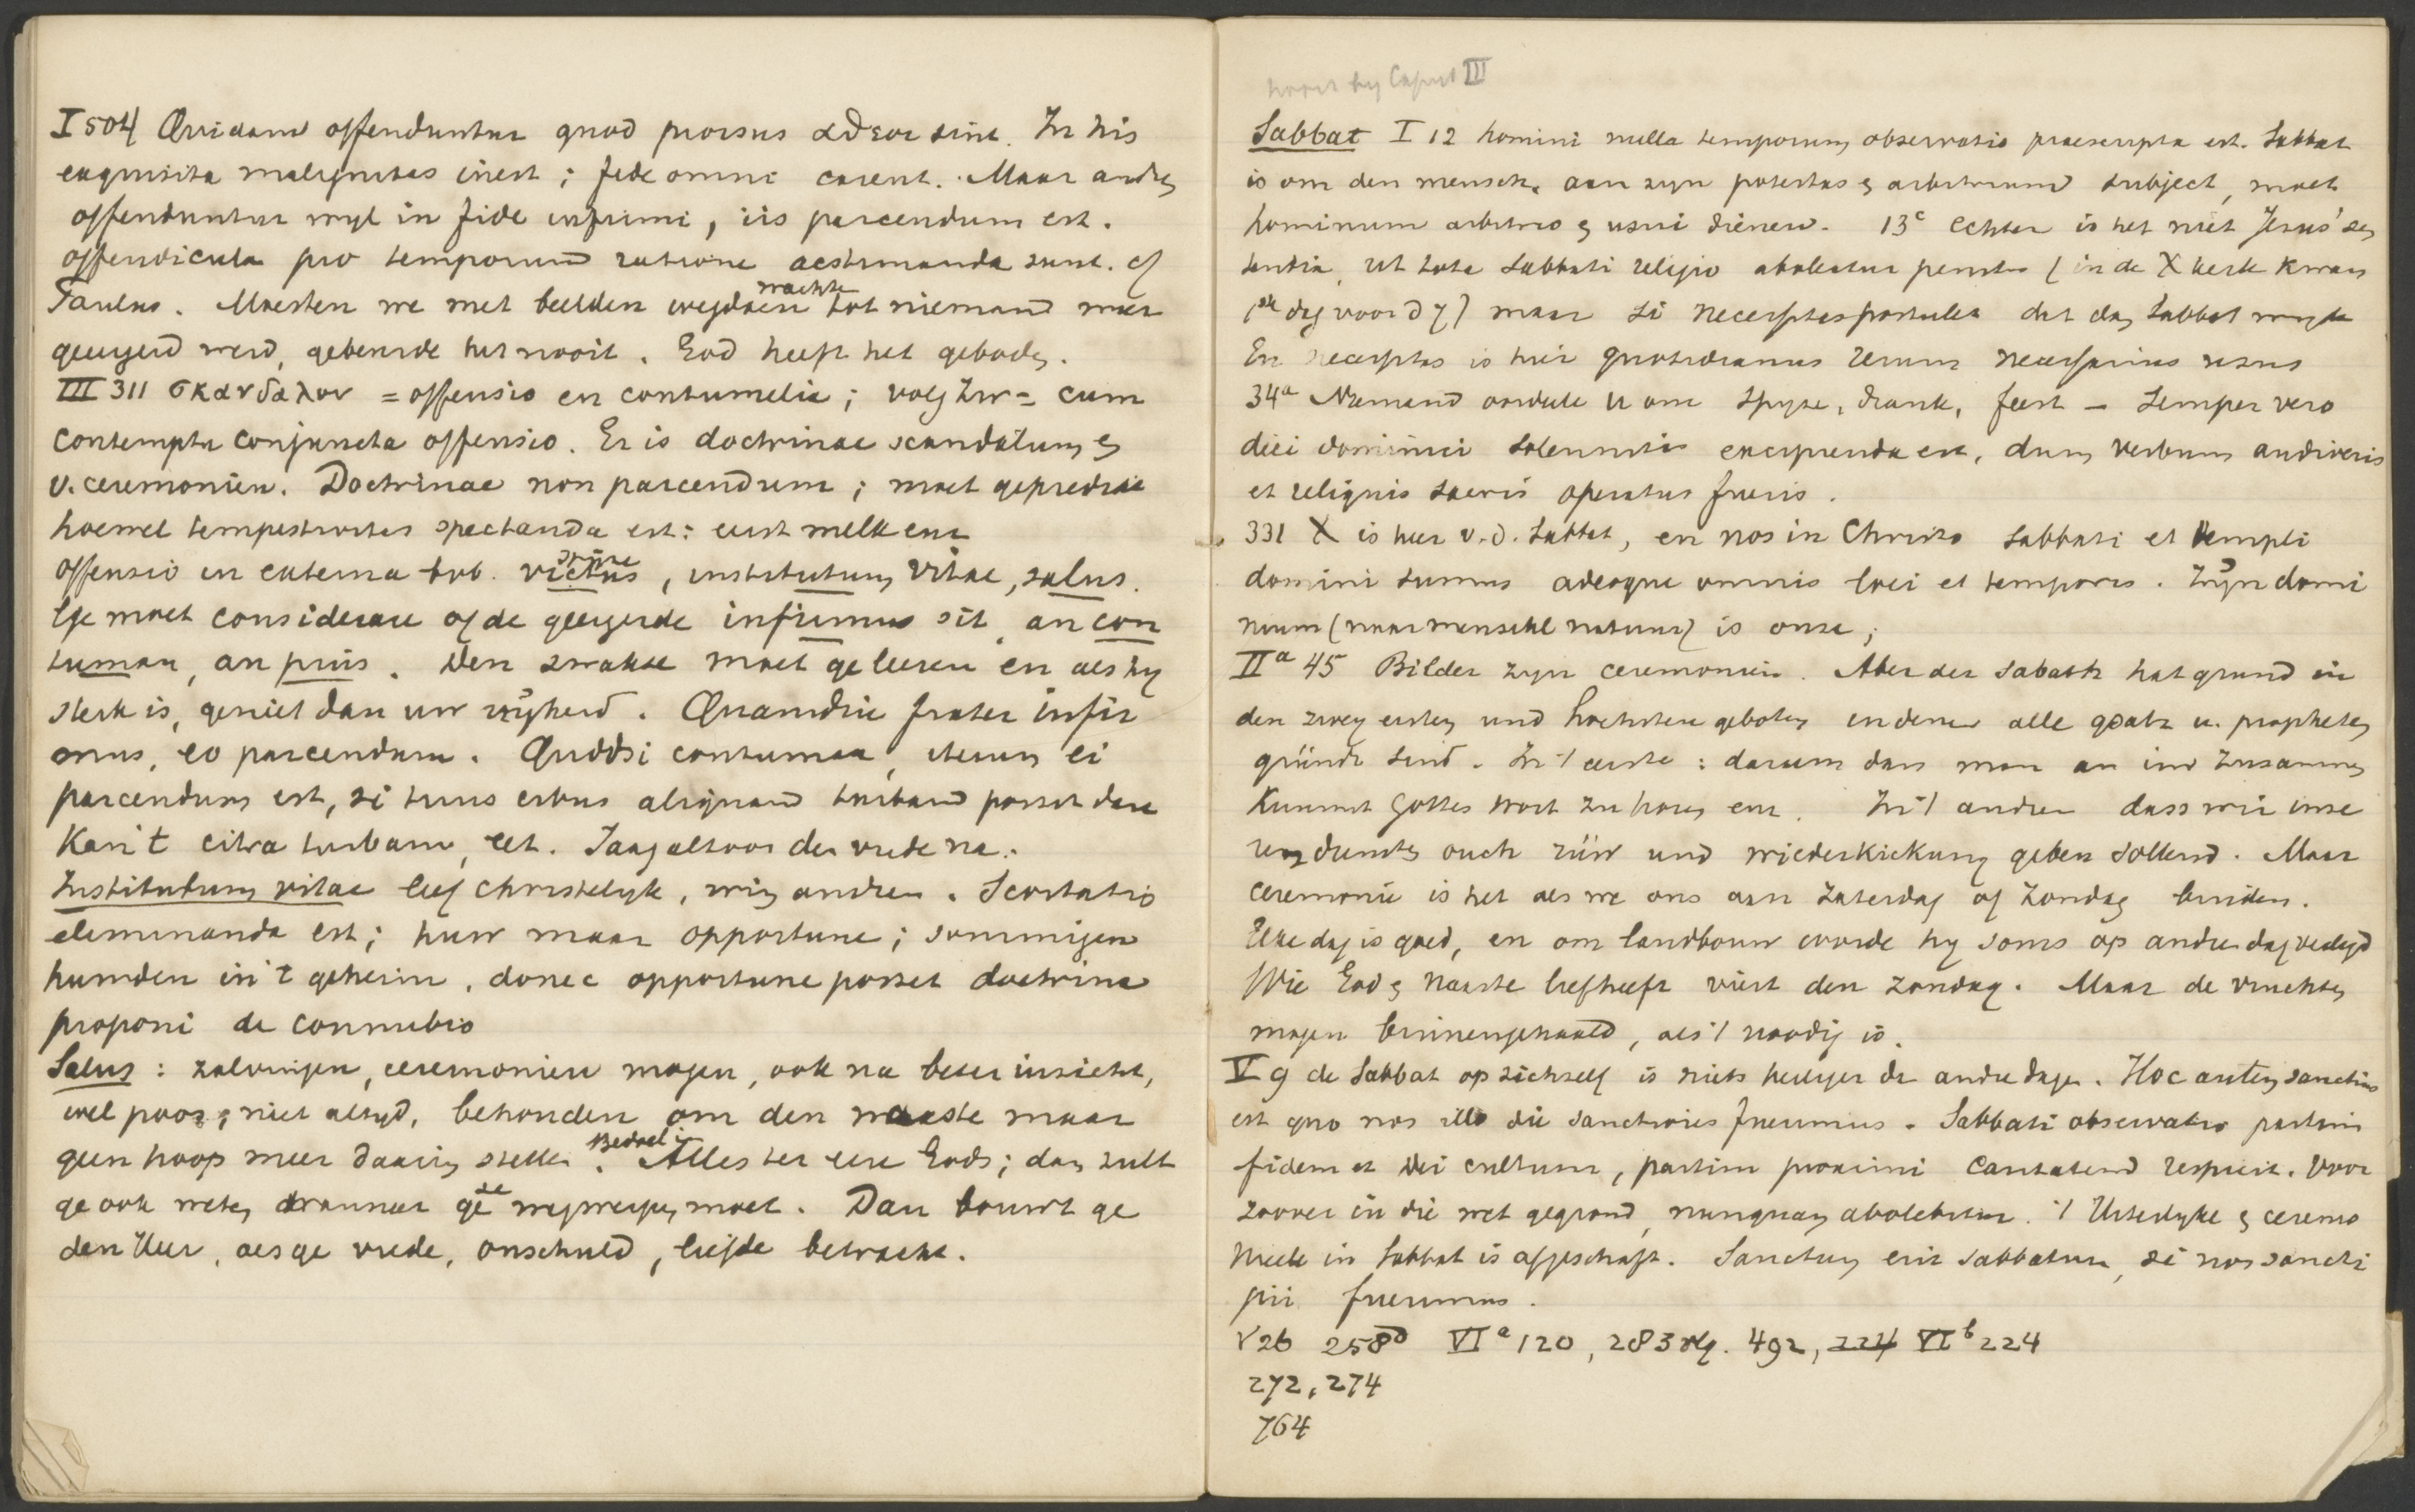 I 504 Quidam offenduntur quod prorsus sint. In his
exquisita malignitas inest; fide omni carent. Maar andren
offenduntur wyl in fide infirmi, iis parcendum est.
offendicula pro temporum ratione aestimanda sunt. cf
Paulus. Moesten we met beelden wegdoen wachten tot niemand meer
geergerd werd, gebeurde het nooit. God heeft het geboden.
III 311 σκανδαλον = offensio en contumelia; volg Zw = cum
contemptu conjuncta offensio. Er is doctrinae scandalum en
v. ceremonien. Doctrinae non parcendum; moet gepredikt
hoewel tempestivitas spectanda est: eerst melk enz
offensio in externa victus, institutum vitae, salus.
Ge moet considerare of de geergerde infirmus sit, an con
tumax, an prius. Den zwakke moet ge leeren en als hy
sterk is, geniet dan uw vryheid. Quamdiu frater infir
mus, eo parcendum. Quodsi contumax, iterum ei
parcendum est, si tuus cibus aliquam turbam posset dare
Kan 't citra turbam, eet. Jaag altoos den vrede na.
Institutum vitae leef christelyk, andren. Scortatio
eliminanda est; huw maar opportune; sommigen
huwden in 't geheim, donec opportune posset doctrina
proponi de connubio
Salus: zalvingen, ceremonien mogen, ook na beter inzicht,
wel poos, niet altyd, behouden om den naaste maar
geen hoop meer daarin stellen. Bedoel: Alles ter eere Gods; dan zult
ge ook weten wanneer ge ze wegwerpen moet. Dan bouwt ge
den Heer, als ge vrede, onschuld, liefde betracht.
hoort by Caput III
Sabbat I 12 homini nulla temporum observatio praescripta est. Sabbat
is om den mensch, aan zyn potestas en arbitrium subject, moet
hominum arbitrio en usui dienen. 13c echter is het niet Jesus' sen
tentia, ut tota sabbati religio aboleatur penitus (in de X kerk kwam
1ste dag voor d 7) maar si necessitas postulet dat dan Sabbat
En necessitas is hier quotidianus rerum necessarius usus
34a Niemand oordeele u om spyze, drank, feest – semper vero
diei dominici solennitas excipienda est, dum verbum audiveris
et reliquis sacris operatus fueris.
331 X is heer v.d. Sabbat, en nos in Christo sabbati et templi
domini sumus adeoque omnis loci et temporis. Zyn domi
nium (naar menschel natuur) is onze;
IIa 45 Bilder zyn ceremonien. Aber der Sabath hat grund in
den zwey ersten und hochsten geboten in denen alle gsatz u. propheten
gründt sind. In 't eerste: darum dass man an im zusammen
kummt Gottes wort zu horen enz. In 't andren dass wir unse
ren dunsten ouch rüw und wiederkickung geben sollend. Maar
ceremonie is het als we ons aan Zaterdag of Zondag binden.
Elke dag is goed, en om landbouw worde hy soms op andren dag verlegd
Wie God en naaste liefheeft viert den Zondag. Maar de vruchten
mogen binnengehaald, als 't noodig is.
V 9 de Sabbat op zichself is niets heiliger dr andre dagen. Hoc autem sanctius
est quo nos illo die sanctiores fuerimus. Sabbati observatio partim
fidem et Dei cultum, partim proximi caritatem respicit. Voor
zoover in die wet gegrond, nunquam abolebitur. 't Uiterlyke en ceremo
nieele in Sabbat is afgeschaft. Sanctum erit sabbatum, si nos sancti
pii fuerimus.
V 26 258d VIa 120, 283 vlg. 492, 224 VIb 224
272, 274
764